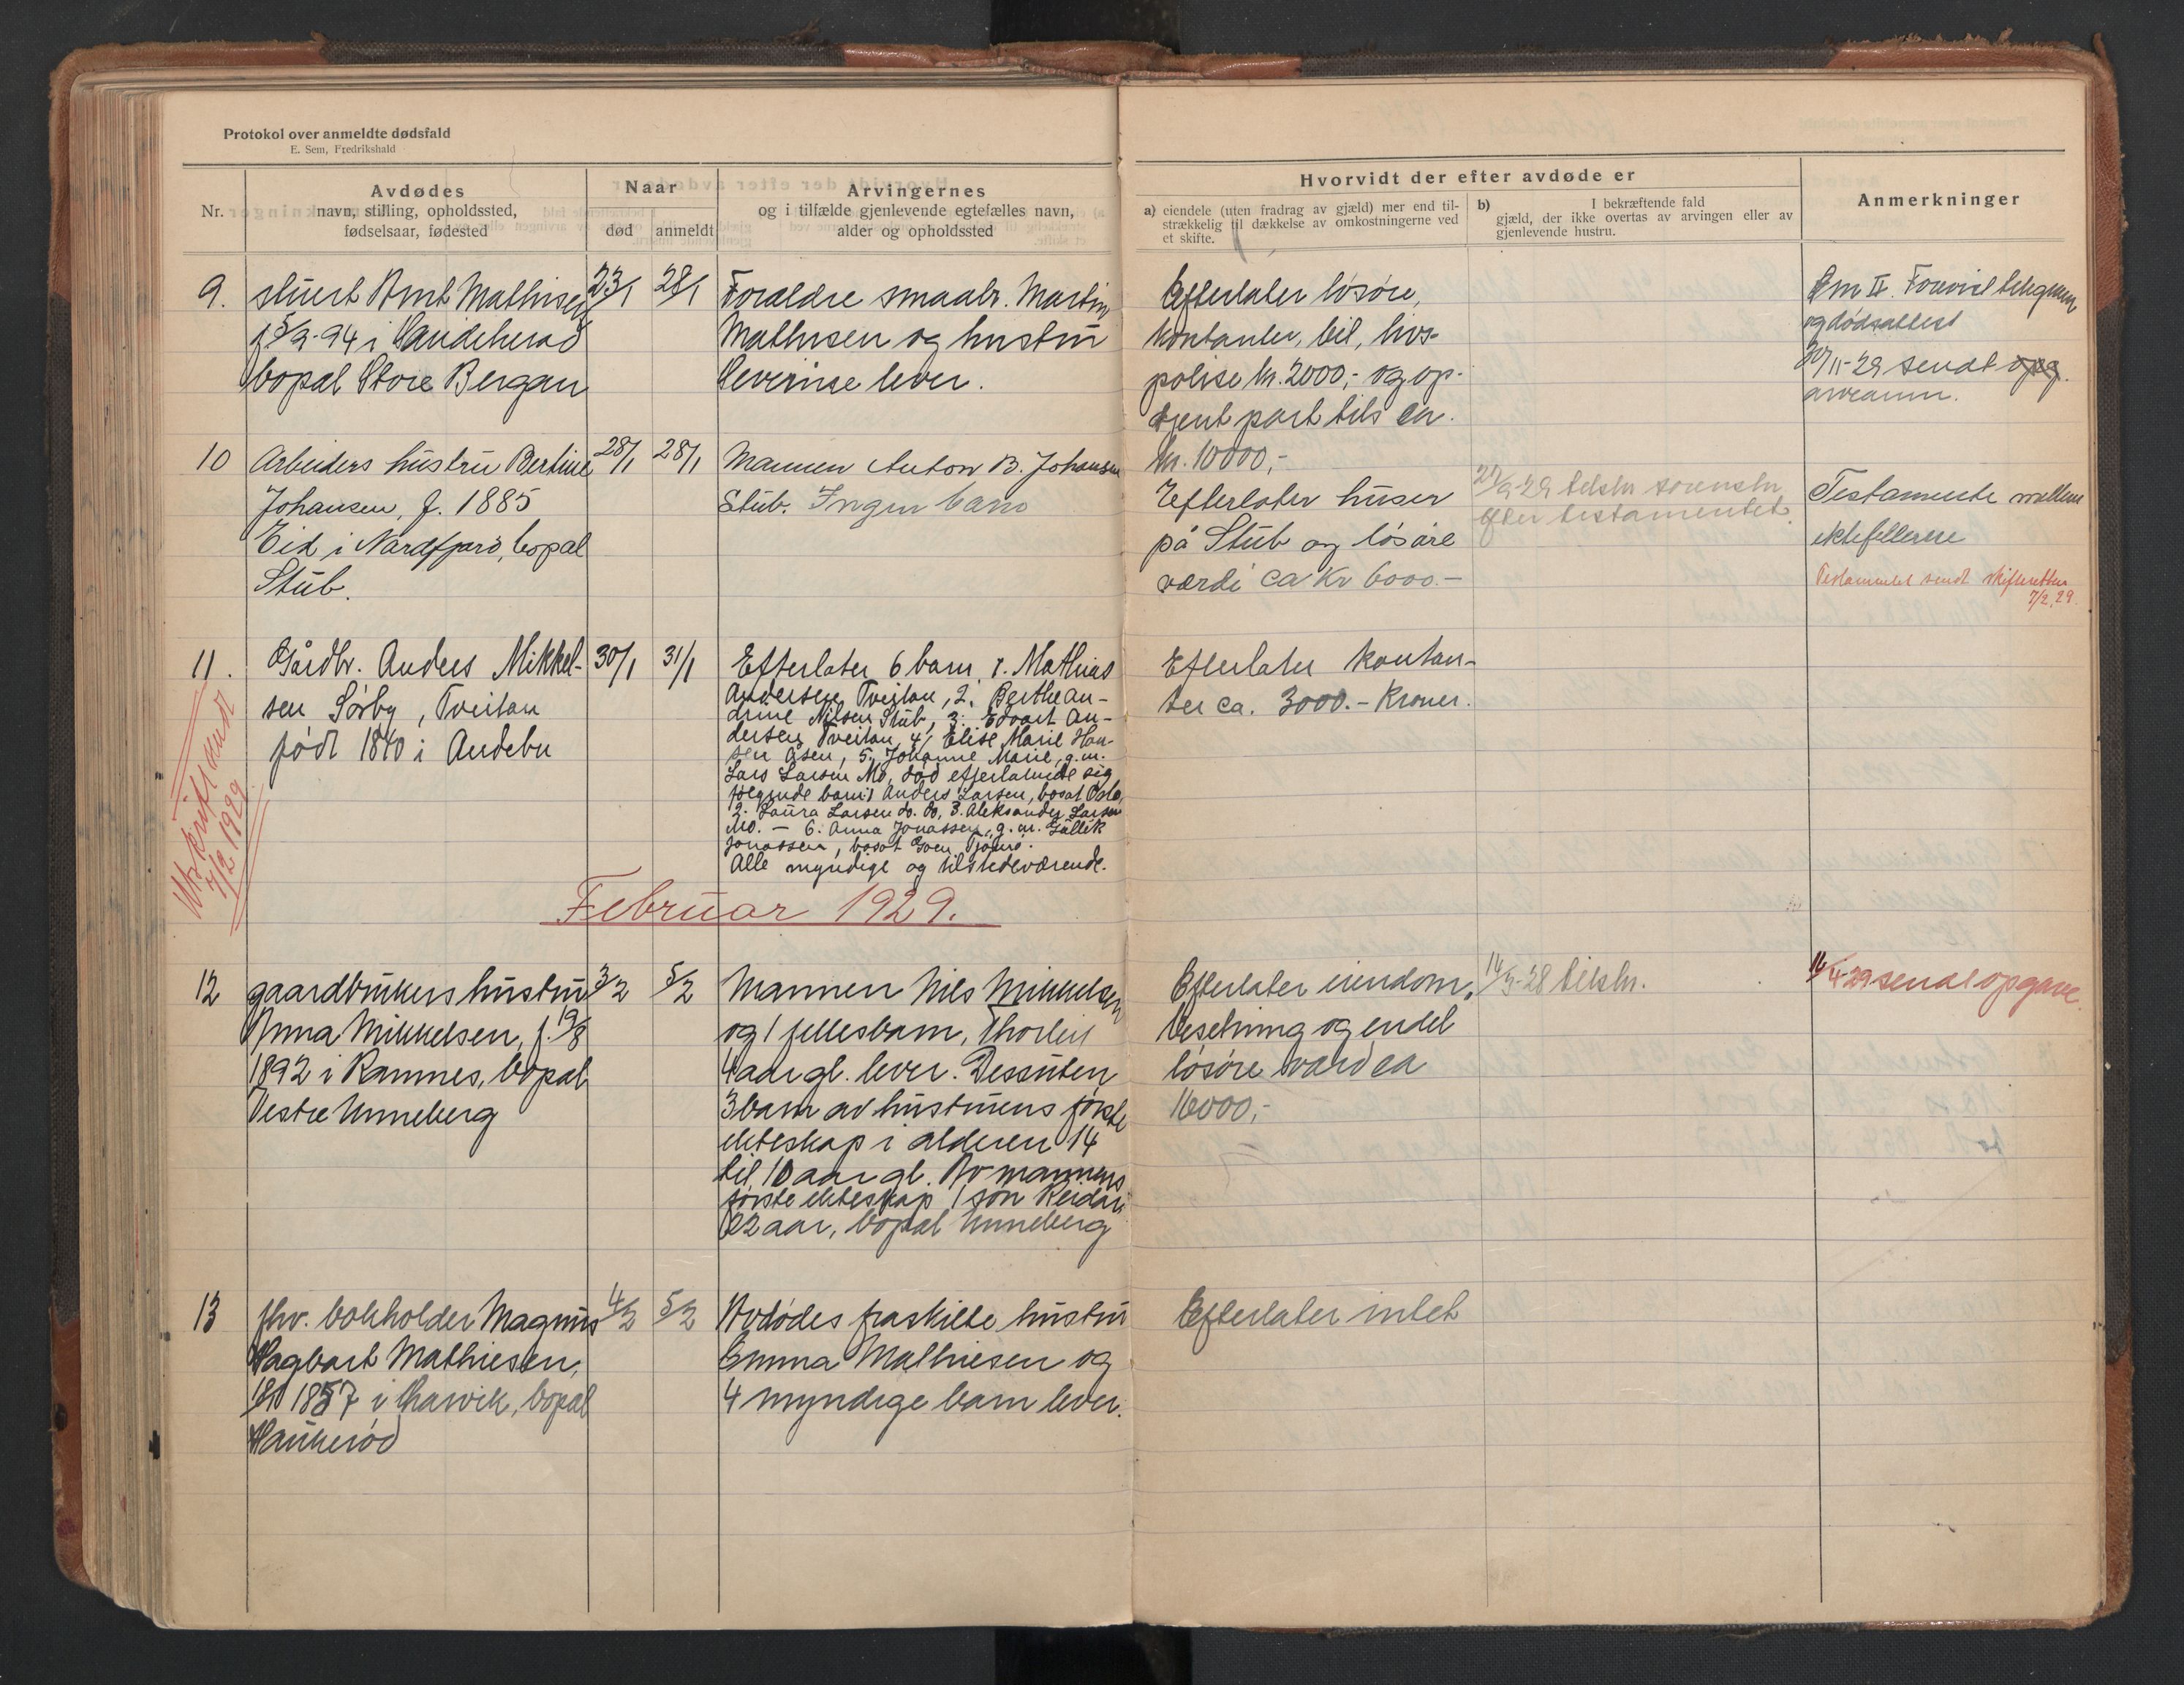 Protokol over anmeldte dødsfald
E. Sem, Fredrikshald
Nr.
Avdødes
navn, stilling, opholdssted,
fødselsaar, fødested
Naar
død
anmeldt
Arvingernes
og i tilfælde gjenlevende egtefælles navn,
alder og opholdssted
Hvorvidt der efter avdøde er
a) eiendele (uten fradrag av gjæld) mer end til-
strækkelig til dækkelse av omkostningerne ved
et skifte.
b) I bekræftende fald
gjæld, der ikke overtas av arvingen eller av
gjenlevende hustru.
Anmerkninger
9.
stuert Arnt Mathisen
f 5/9-94 i Sandeherad
bopal Store Bergan
23/1
28/1
Foraldre smaabr. Martin
Mathisen og hustru
Severine lever.
Efterlater løsøre,
kontanter, bil, livs-
polise kr. 2000,- og op-
tjent part tils ca.
kr. 10000,-
og dødsattest
20/11-29 sendt opg.
arveanm.
10
Arbeiders hustru Bertine
Johansen, f. 1885
Eid i Nordfjord, bopal
Stub.
28/1
28/1
Mannen Anton B. Johansen
Stub. Ingen barn
Efterlater huser
på Stub og løsøre
værdi ca Kr 6000.-
27/9-29 tilstr.
efter testamentet.
Testamente mellem
ektefellerne
Testamentet sendt skifteretten
7/2. 29.
11.
Utskrift sendt
7/2 1929
Gårdbr. Anders Mikkel-
sen Sørby, Tveitan
født 1840 i Andebu
30/1
31/1
Efterlater 6 barn, 1. Mathias
Andersen Tveitan, 2. Berthe An-
drine Nilsen Stub, 3. Edvart An-
dersen Tveitan, 4/ Elise Marie Han-
sen Åsen, 5. Johanne Marie, g.m.
Lars Larsen Mo, død efterlatende sig
følgende barn: 1 Anders Larsen, bosat Oslo,
2. Laura Larsen do. do, 3. Aleksander Larsen
Mo. – 6. Anna Jonassen, g. m. Gullik
Jonassen, bosat Tjømø.
Alle myndige og tilstedeværende.
Efterlater kontan-
ter ca. 3000.- Kroner.
Februar 1929.
12
gaardbrukers hustru
Anna Mikkelsen, f. 19/8
1892 i Ramnes, bopal
Vestre Unneberg
3/2
5/2
Mannen Nils Mikkelsen
og 1 fellesbarn, Thorleif
4 aar gl. lever. Dessuten
3 barn av hustruens første
ekteskap i alderen 14
til 10 aar gl. Av mannens
første ekteskap 1 søn Reidar
22 aar, bopal Unneberg
Efterlater eiendom,
besetning og endel
løsøre værd ca
16000,-
14/3-28 tilstr.
16/4-29 sendt opgave.
13
fhv. bokholder Magnus
Hagbart Mathiesen,
1857 i Larvik, bopal
Haukerød
4/2
5/2
Avdødes fraskilte hustru
Emma Mathiesen og
4 myndige barn lever.
Efterlater intet